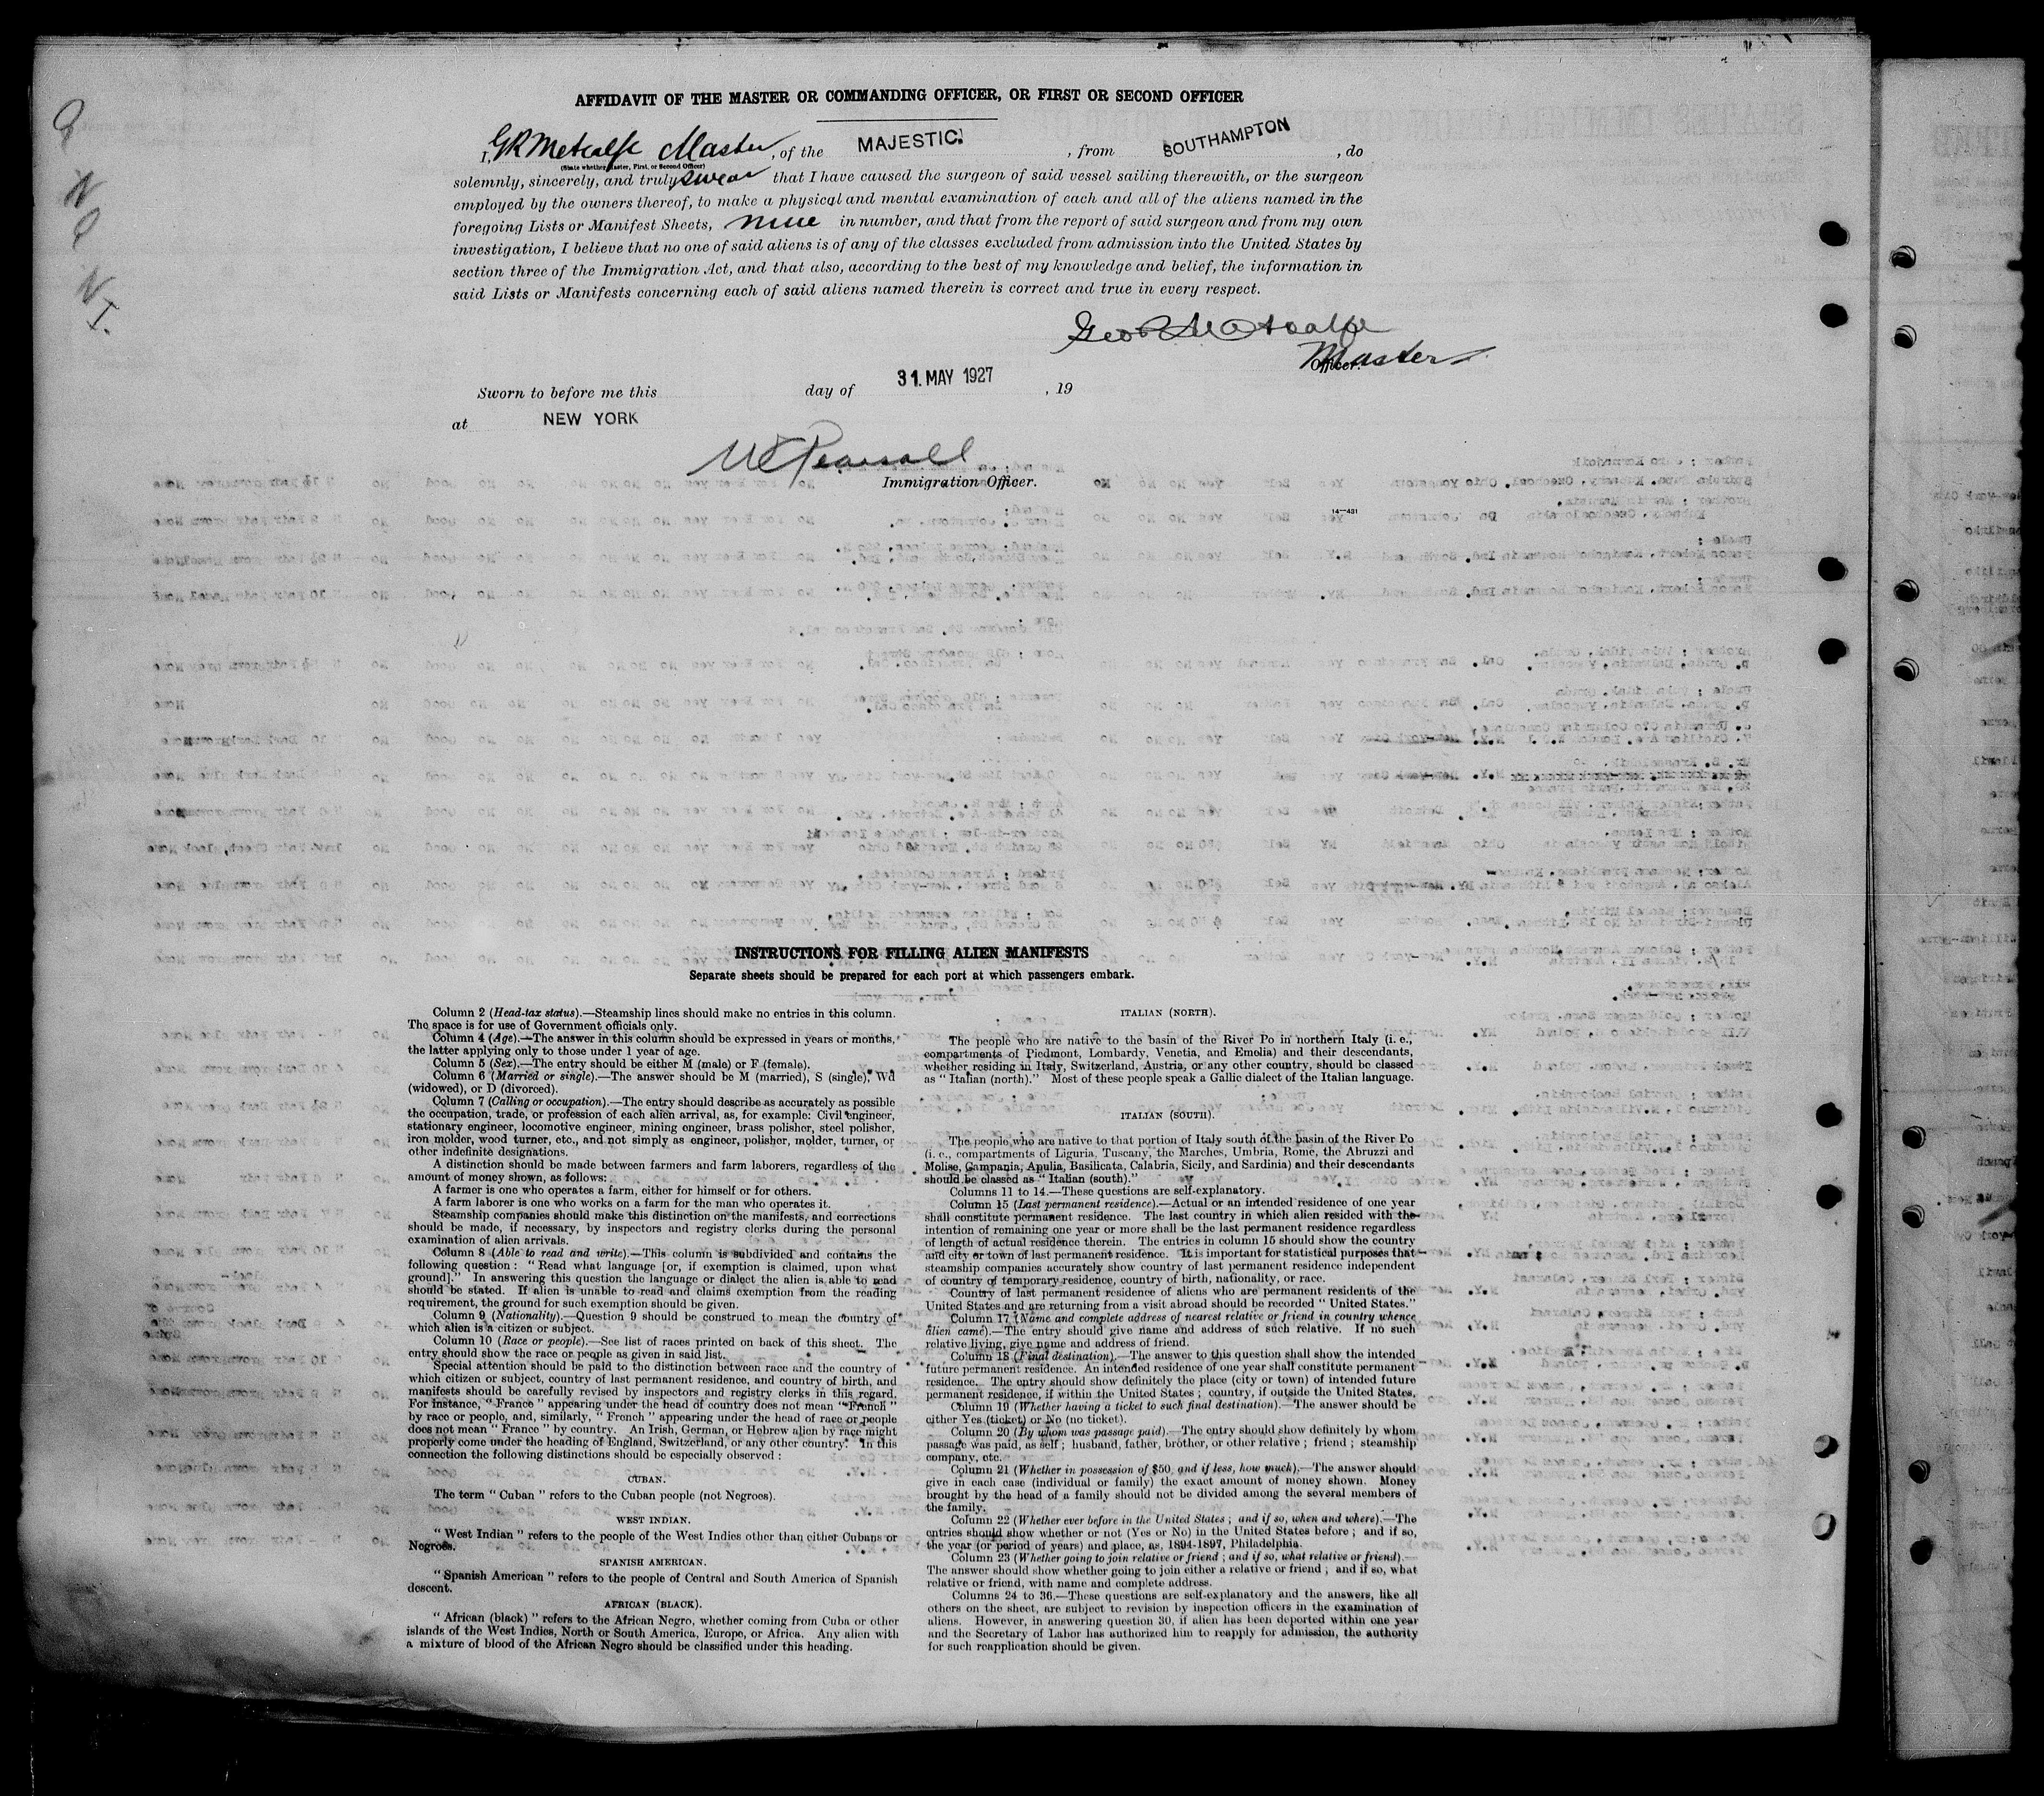 AFFIDAVIT OF THE MASTER OR COMMANDING OFFICER, OR FIRST OR SECOND OFFICER
I, GR Metcalfe Master, of the MAJESTIC. , from SOUTHAMPTON , do
(State whether Master, First, or Second Officer)
solemnly, sincerely, and truly swear that I have caused the surgeon of said vessel sailing therewith, or the surgeon
employed by the owners thereof, to make a physical and mental examination of each and all of the aliens named in the
foregoing Lists or Manifest Sheets, nine in number, and that from the report of said surgeon and from my own
investigation, I believe that no one of said aliens is of any of the classes excluded from admission into the United States by
section three of the Immigration Act, and that also, according to the best of my knowledge and belief, the information in
said Lists or Manifests concerning each of said aliens named therein is correct and true in every respect.
Geo R Metcalfe
Master
Officer.
Sworn to before me this day of 31. MAY 1927 , 19
at NEW YORK
Immigration Officer.
14—431
INSTRUCTIONS FOR FILLING ALIEN MANIFESTS
Separate sheets should be prepared for each port at which passengers embark.
Column 2 (Head-tax status).—Steamship lines should make no entries in this column.
The space is for use of Government officials only.
Column 4 (Age).—The answer in this column should be expressed in years or months,
the latter applying only to those under 1 year of age.
Column 5 (Sex).—The entry should be either M (male) or F (female).
Column 6 (Married or single).—The answer should be M (married), S (single), Wd
(widowed), or D (divorced).
Column 7 (Calling or occupation).—The entry should describe as accurately as possible
the occupation, trade, or profession of each alien arrival, as, for example: Civil engineer,
stationary engineer, locomotive engineer, mining engineer, brass polisher, steel polisher,
iron molder, wood turner, etc., and not simply as engineer, polisher, molder, turner, or
other indefinite designations.
A distinction should be made between farmers and farm laborers, regardless of the
amount of money shown, as follows:
A farmer is one who operates a farm, either for himself or for others.
A farm laborer is one who works on a farm for the man who operates it.
Steamship companies should make this distinction on the manifests, and corrections
should be made, if necessary, by inspectors and registry clerks during the personal
examination of alien arrivals.
Column 8 (Able to read and write).—This column is subdivided and contains the
following question: "Read what language [or, if exemption is claimed, upon what
ground]." In answering this question the language or dialect the alien is able to read
should be stated. If alien is unable to read and claims exemption from the reading
requirement, the ground for such exemption should be given.
Column 9 (Nationality).—Question 9 should be construed to mean the country of
which alien is a citizen or subject.
Column 10 (Race or people).—See list of races printed on back of this sheet. The
entry should show the race or people as given in said list.
Special attention should be paid to the distinction between race and the country of
which citizen or subject, country of last permanent residence, and country of birth, and
manifests should be carefully revised by inspectors and registry clerks in this regard.
For instance, "France" appearing under the head of country does not mean "French"
by race or people, and, similarly, "French" appearing under the head of race or people
does not mean "France" by country. An Irish, German, or Hebrew alien by race might
properly come under the heading of England, Switzerland, or any other country. In this
connection the following distinctions should be especially observed:
CUBAN.
The term "Cuban" refers to the Cuban people (not Negroes).
WEST INDIAN.
"West Indian" refers to the people of the West Indies other than either Cubans or
Negroes.
SPANISH AMERICAN.
"Spanish American" refers to the people of Central and South America of Spanish
descent.
AFRICAN (BLACK).
"African (black)" refers to the African Negro, whether coming from Cuba or other
islands of the West Indies, North or South America, Europe, or Africa. Any alien with
a mixture of blood of the African Negro should be classified under this heading.
ITALIAN (NORTH).
The people who are native to the basin of the River Po in northern Italy (i. e.,
compartments of Piedmont, Lombardy, Venetia, and Emelia) and their descendants,
whether residing in Italy, Switzerland, Austria, or any other country, should be classed
as "Italian (north)." Most of these people speak a Gallic dialect of the Italian language.
ITALIAN (SOUTH).
The people who are native to that portion of Italy south of the basin of the River Po
(i. e., compartments of Liguria, Tuscany, the Marches, Umbria, Rome, the Abruzzi and
Molise, Campania, Apulia, Basilicata, Calabria, Sicily, and Sardinia) and their descendants
should be classed as "Italian (south)."
Columns 11 to 14.—These questions are self-explanatory.
Column 15 (Last permanent residence).—Actual or an intended residence of one year
shall constitute permanent residence. The last country in which alien resided with the
intention of remaining one year or more shall be the last permanent residence regardless
of length of actual residence therein. The entries in column 15 should show the country
and city or town of last permanent residence. It is important for statistical purposes that
steamship companies accurately show country of last permanent residence independent
of country of temporary residence, country of birth, nationality, or race.
Country of last permanent residence of aliens who are permanent residents of the
United States and are returning from a visit abroad should be recorded "United States."
Column 17 (Name and complete address of nearest relative or friend in country whence
alien came).—The entry should give name and address of such relative. If no such
relative living, give name and address of friend.
Column 18 (Final destination).—The answer to this question shall show the intended
future permanent residence. An intended residence of one year shall constitute permanent
residence. The entry should show definitely the place (city or town) of intended future
permanent residence, if within the United States; country, if outside the United States.
Column 19 (Whether having a ticket to such final destination).—The answer should be
either Yes (ticket) or No (no ticket).
Column 20 (By whom was passage paid).—The entry should show definitely by whom
passage was paid, as self; husband, father, brother, or other relative; friend; steamship
company, etc.
Column 21 (Whether in possession of $50, and if less, how much).—The answer should
give in each case (individual or family) the exact amount of money shown. Money
brought by the head of a family should not be divided among the several members of
the family.
Column 22 (Whether ever before in the United States; and if so, when and where).—The
entries should show whether or not (Yes or No) in the United States before; and if so,
the year (or period of years) and place, as, 1894-1897, Philadelphia.
Column 23 (Whether going to join relative or friend; and if so, what relative or friend).—
The answer should show whether going to join either a relative or friend; and if so, what
relative or friend, with name and complete address.
Columns 24 to 36.—These questions are self-explanatory and the answers, like all
others on the sheet, are subject to revision by inspection officers in the examination of
aliens. However, in answering question 30, if alien has been deported within one year
and the Secretary of Labor has authorized him to reapply for admission, the authority
for such reapplication should be given.